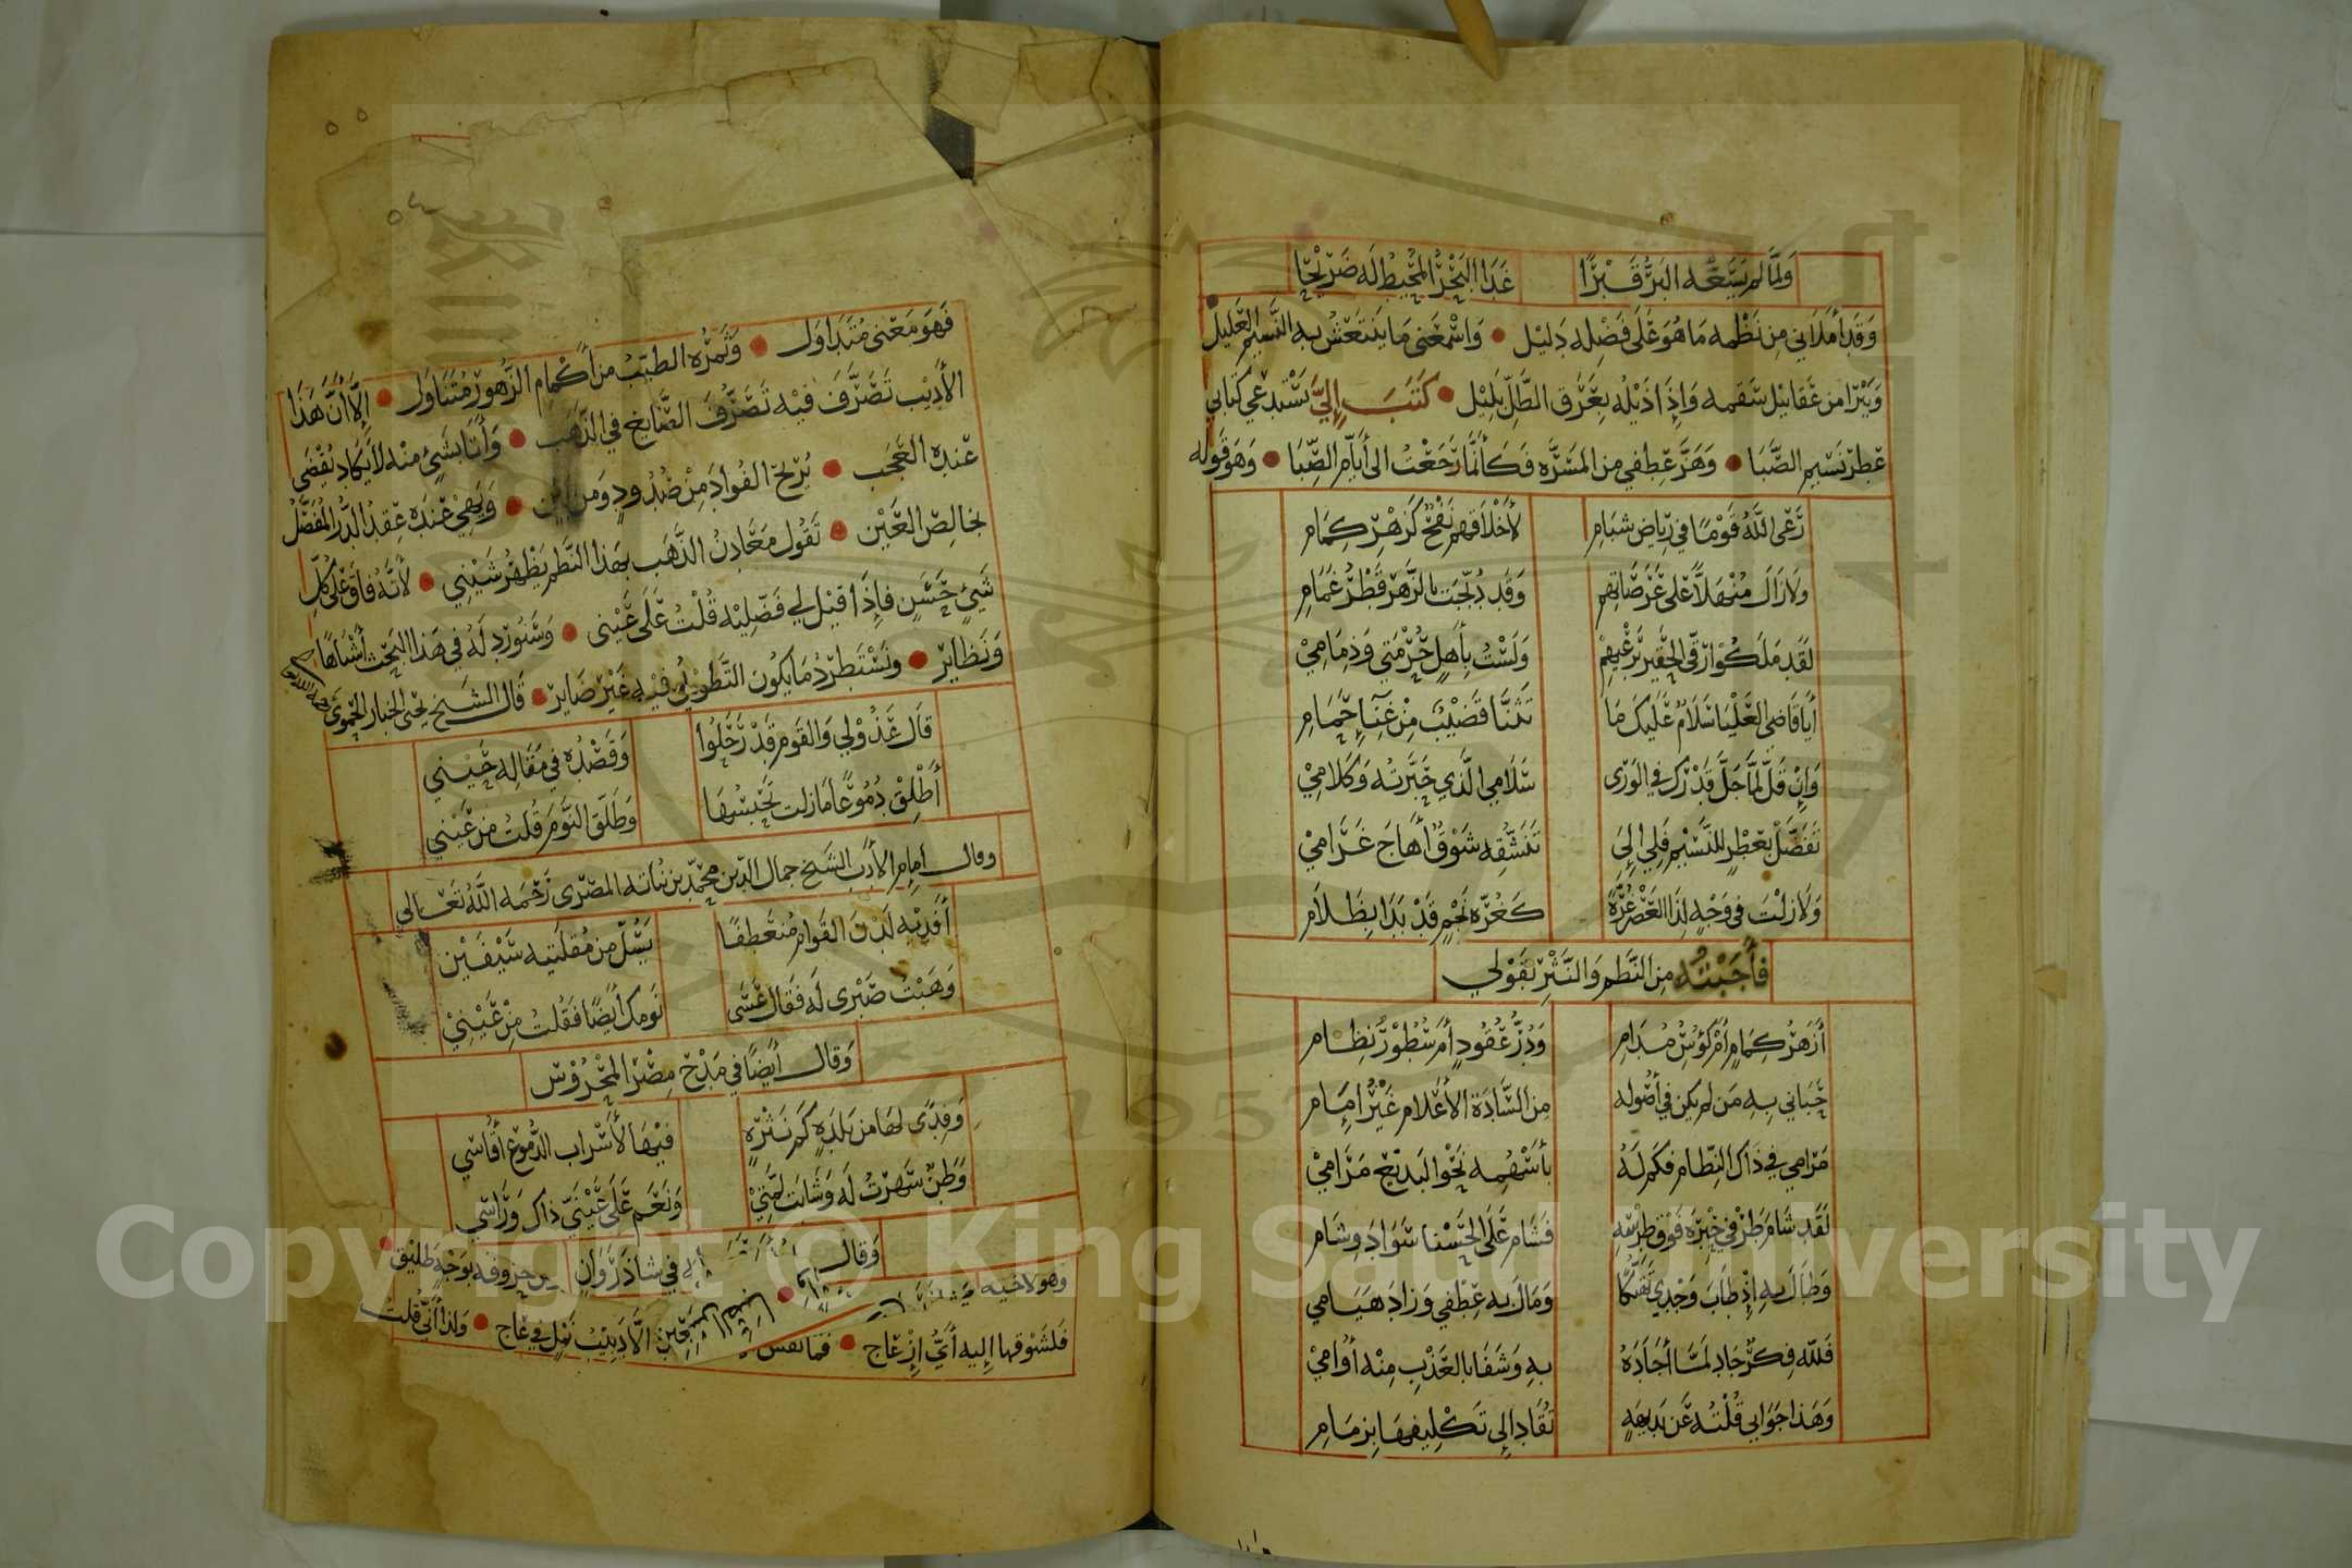 وَلَمَّا لم يَسَعْه البَرُّ قَبْرًا غَدَا البَحْرُ المُحِيطُ لَه ضَرِيحًا
وَقَد أَمْلَانِي مِن نَظْمِه مَا هُوَ عَلَى فَضْلِه دَلِيل وَاسْمَعَنِي مَا يَنتَعِشُ بِه النَّسِيم العَلِيل
وَيَبْرَا مِن عَقَابِيل سَقَمِه وَاِذَا ذَيْلُه بِعَرَق الطَّلِّ بَلِيْل كَتَبَ إِلَيَّ يَسْتَدعِي كتَابِي
عِطرَ نَسِيم الصَّبَا وَهَزَّ عِطْفِي مِن المَسَرَّه فَكَأَنَّمَا رَجَعْتُ الى أَيَّام الصِّبَا وَهوَ قَوله
رَعَى اللَّهُ قَوْمًا فِي رِيَاض شبَامِ لأَخْلَاقِهم نَفْحٌ كَزَهْرِ كِمَامِ
وَلَا زَالَ مُنْهَلاًّ عَلَى عَرَصَاتِهِم وَقَد دُبِّجَت بالزَّهرِ قَطْرُ غَمَامِ
لَقَد مَلَكُوا رِقِّي الحَقِير بِرَعْيِهِمْ وَلَسْتُ بِأَهلٍ حُرْمَتِي وَذِمَامِيْ
أَيَا قَاضِي العَلْيَا سَلَامٌ عَلَيكَ مَا تَثَنَّا قَضِيْبٌ مِنْ غِنَاءِ حَمَامِ
وَاِنْ قَلَّ لَمَّا جَلَّ قَدْرُكَ فِي الوَرَى سَلَامِي الَّذِي حَبَّرتُه وَكَلَامِيْ
تَفَضَّلْ بِعِطْرٍ لِلنَّسِيْمِ فَلِي إِلَى تَنَشُّقِه شَوْقٌ أَهَاجَ غَرَامِيْ
وَلَا زِلْتَ فِي وَجْهٍ لِذَا العَصْرِ غُرَّةً كَغُرَّه نَجْمٍ قَدْ بَدَا بِظَلَامِ
فَأَجَبْتُه مِن النَّظم وَالنَّثْرِ بقَوْلي
أَزَهرُ كِمَامٍ أَمْ كُؤُسُ مُدَامِ وَدُرُّ عُقُودٍ أَمْ سُطُوْرُ نِظَامِ
حَبَانِي بِه مَن لم يكن فِي أُصُوله مِن السَّادَة الأَعْلَام غَيْرُ اِمَامِ
مَرَامِي فِي ذَاكَ النِّظَام فكَم لَهُ بأَسْهُمِه نَحْوَ البَدِيْعِ مَرَامِيْ
لَقَد شَامَ طَرْفِي حِبْرَه فَوْقَ طِرْسِهِ فَشَامَ عَلَى الحَسْنا سَوَادَ وِشَامِ
وَطَالَ بِهِ إِذْ طَابَ وَجْدِي وَمَالَ بِه عِطْفِي وَزَادَ هيَامِي
فَلِلّه فِكْرٌ جَادَ لَمَّا أَجَادَهُ بِهِ وَشَفَا بالعَذْبِ مِنْه أُوَامِيْ
وَهَذا جَوَابِي قُلْتُه عَن بَدِيهَةٍ تُقَاد إِلى تَكْلِيفِهَا بِزِمَامِ
٥٤
فَهوَ مَعْنى مُتَدَاوَل وَثَمَرُه الطيِّبُ من أَكْمَام الزُّهور مُتَنَاوَل إِلّا أنَّ هَذَا
الأَدِيْب تَصَرَّفَ فِيْه تَصَرُّفَ الصَّايغ فِي الذَّهَب وَأَتَا بشَيْ منْه لَا يكَاد يُقْضَي
عَنْده العَجَب يُرِيْحُ الفُوادَ مِنْ صُدُودٍ وَمِن وَيَهِي عَنْدَه عِقدُ الدُّرِّ المُفَصَّلُ
بخَالِصِ العَيْن تَقُول مَعَادِنُ الذَّهَب بهَذا النَّظم يَظْهر شَيْنِي لأَنَّهُ فَاقَ عَلى كُلِّ
شَيْ حَسَنٍ فَإِذَا قِيْل لي فَضِّلِيْه قُلْتُ عَلَى عَيْنى وَسَنُورد لَهُ فِي هَذا البَحْث أَشْبَاهًا
وَنَظَاير وَنَسْتَطرِدُ مَا يكُون التَّطْوِيْلُ فيْه غَيْر ضَاير قَال الشَيخ يحيَى الخبّاز الحَمَوي رحمه الله تعالى
قَالَ عَذُوْلِي وَالقَوم قَدْ رَحَلُوا وَقَصْدُه فِي مَقَالِه حَيْنِي
أَطْلِقْ دُمُوعًا مَا زِلت تَحْبِسُهَا وَطَلِّقِ النَّوْمَ قُلتُ مِن عَيْني
وقال اِمام الأدَب الشَيخ جمال الدِّين مُحَمّد بن نُبَاته المصْرى رَحمَه اللَّهُ تَعَالى
أَفْدِيْه لَدْنَ القَوَام مُنعَطِفًا يَسُلّ مِن مُقلَتَيه سَيْفَيْنِ
وَهَبْتُ صَبْرى لَه فَقَال عَسَى نَومك أَيضًا فَقُلتُ مِنْ عَيْنِيْ
وَقَال أَيضًا فِي مَدْح مِصْر المَحْرُوْسَه
وَفِدًى لهَا مِن بَلدَةٍ كَم نَثْرَةٍ فِيْهَا لأَسْرابِ الدُّمُوعِ أُقَاسِي
وَطَنٌ سَهِرْتُ لَه وَشَابَت لِمَّتِيْ وَنَعَم عَلَى عَيْنَيَّ ذَاك وَرَاسِي
وَقَال فِي شَاذَرْوَان حروفه بوَجْه طَلِيْق
وهو لاخيه
فَلِشَوْقها إِليه أَيُّ اِزْعَاج فما نفس الأَدِيْب وَلِذا أَنِّي قُلتُ
Copyright © King Saud University
1957